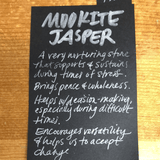 MOOKITE
JASPER
A very nurturing stone
that supports & sustains
during times of stress.
Brings peace & wholeness.
Helps w/decision-making,
especially during difficult
times.
Encourages versatility
& helps us to accept
change